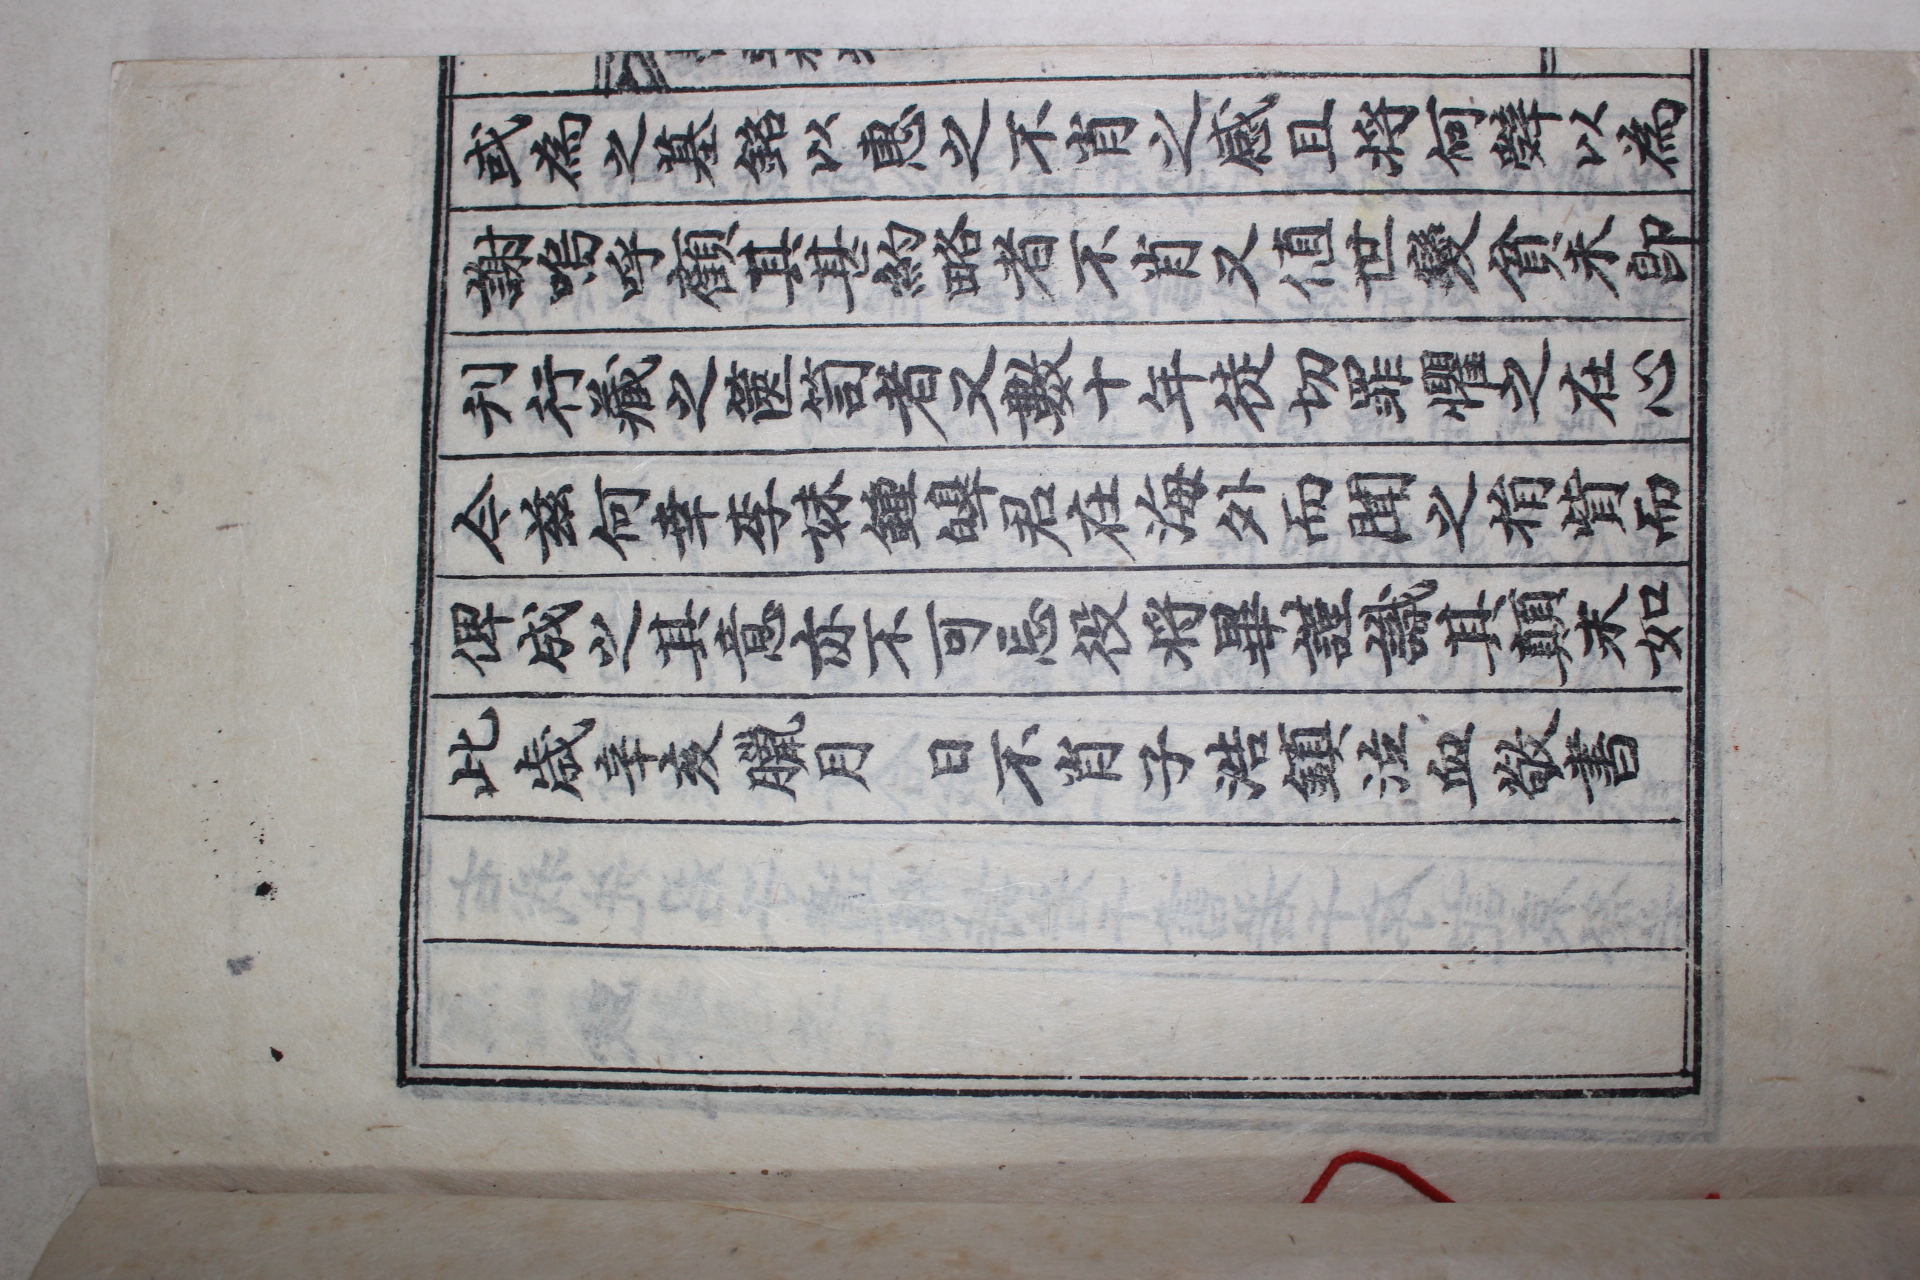 或為之墓銘以惠之不肖之感且將何辭以為
謝嗚呼顧其甚約略者不肖又值世變貧未卽
刊行藏之篋笥者又數十年徒切罪懼之在心
今玆何幸李妹鍾皥君在海外而聞之捐貲而
俾成之其意亦不可忘役將畢謹識其顛末如
此歲辛亥臘月　日不肖子浩鎭泣血敬書